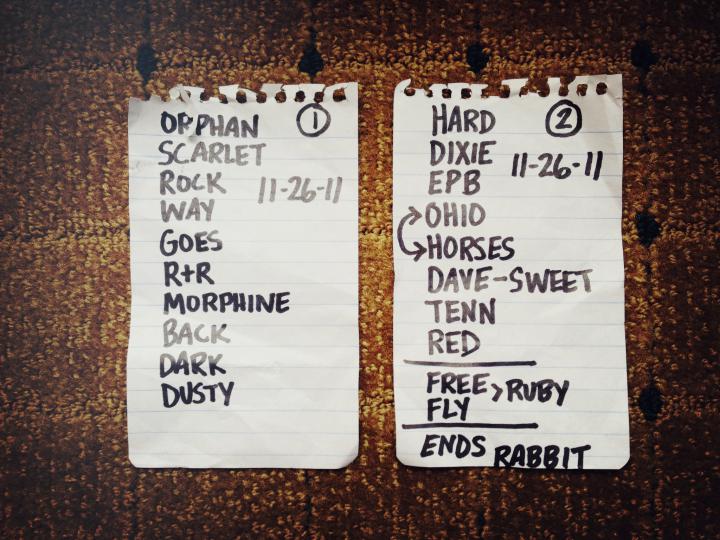 ORPHAN 1
SCARLET
ROCK 11-26-11
WAY
GOES
R+R
MORPHINE
BACK
DARK
DUSTY
HARD 2
DIXIE 11-26-11
EPB
OHIO
HORSES
DAVE-SWEET
TENN
RED
FREE > RUBY
FLY
ENDS RABBIT